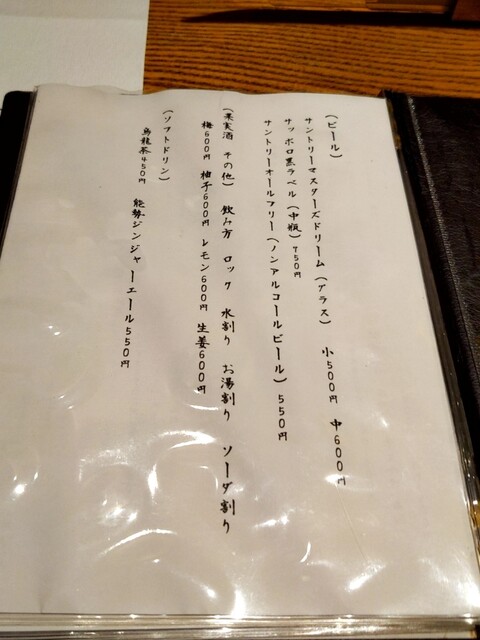 (ビール)
サントリーマスターズドリーム(グラス) 小500円 中600円
サッポロ黒ラベル(中瓶)750円
サントリーオールフリー(ノンアルコールビール)550円
(果実酒 その他) 飲み方 ロック 水割り お湯割り ソーダ割り
梅600円 柚子600円 レモン600円 生姜600円
(ソフトドリン)
烏龍茶450円 能勢ジンジャーエール550円